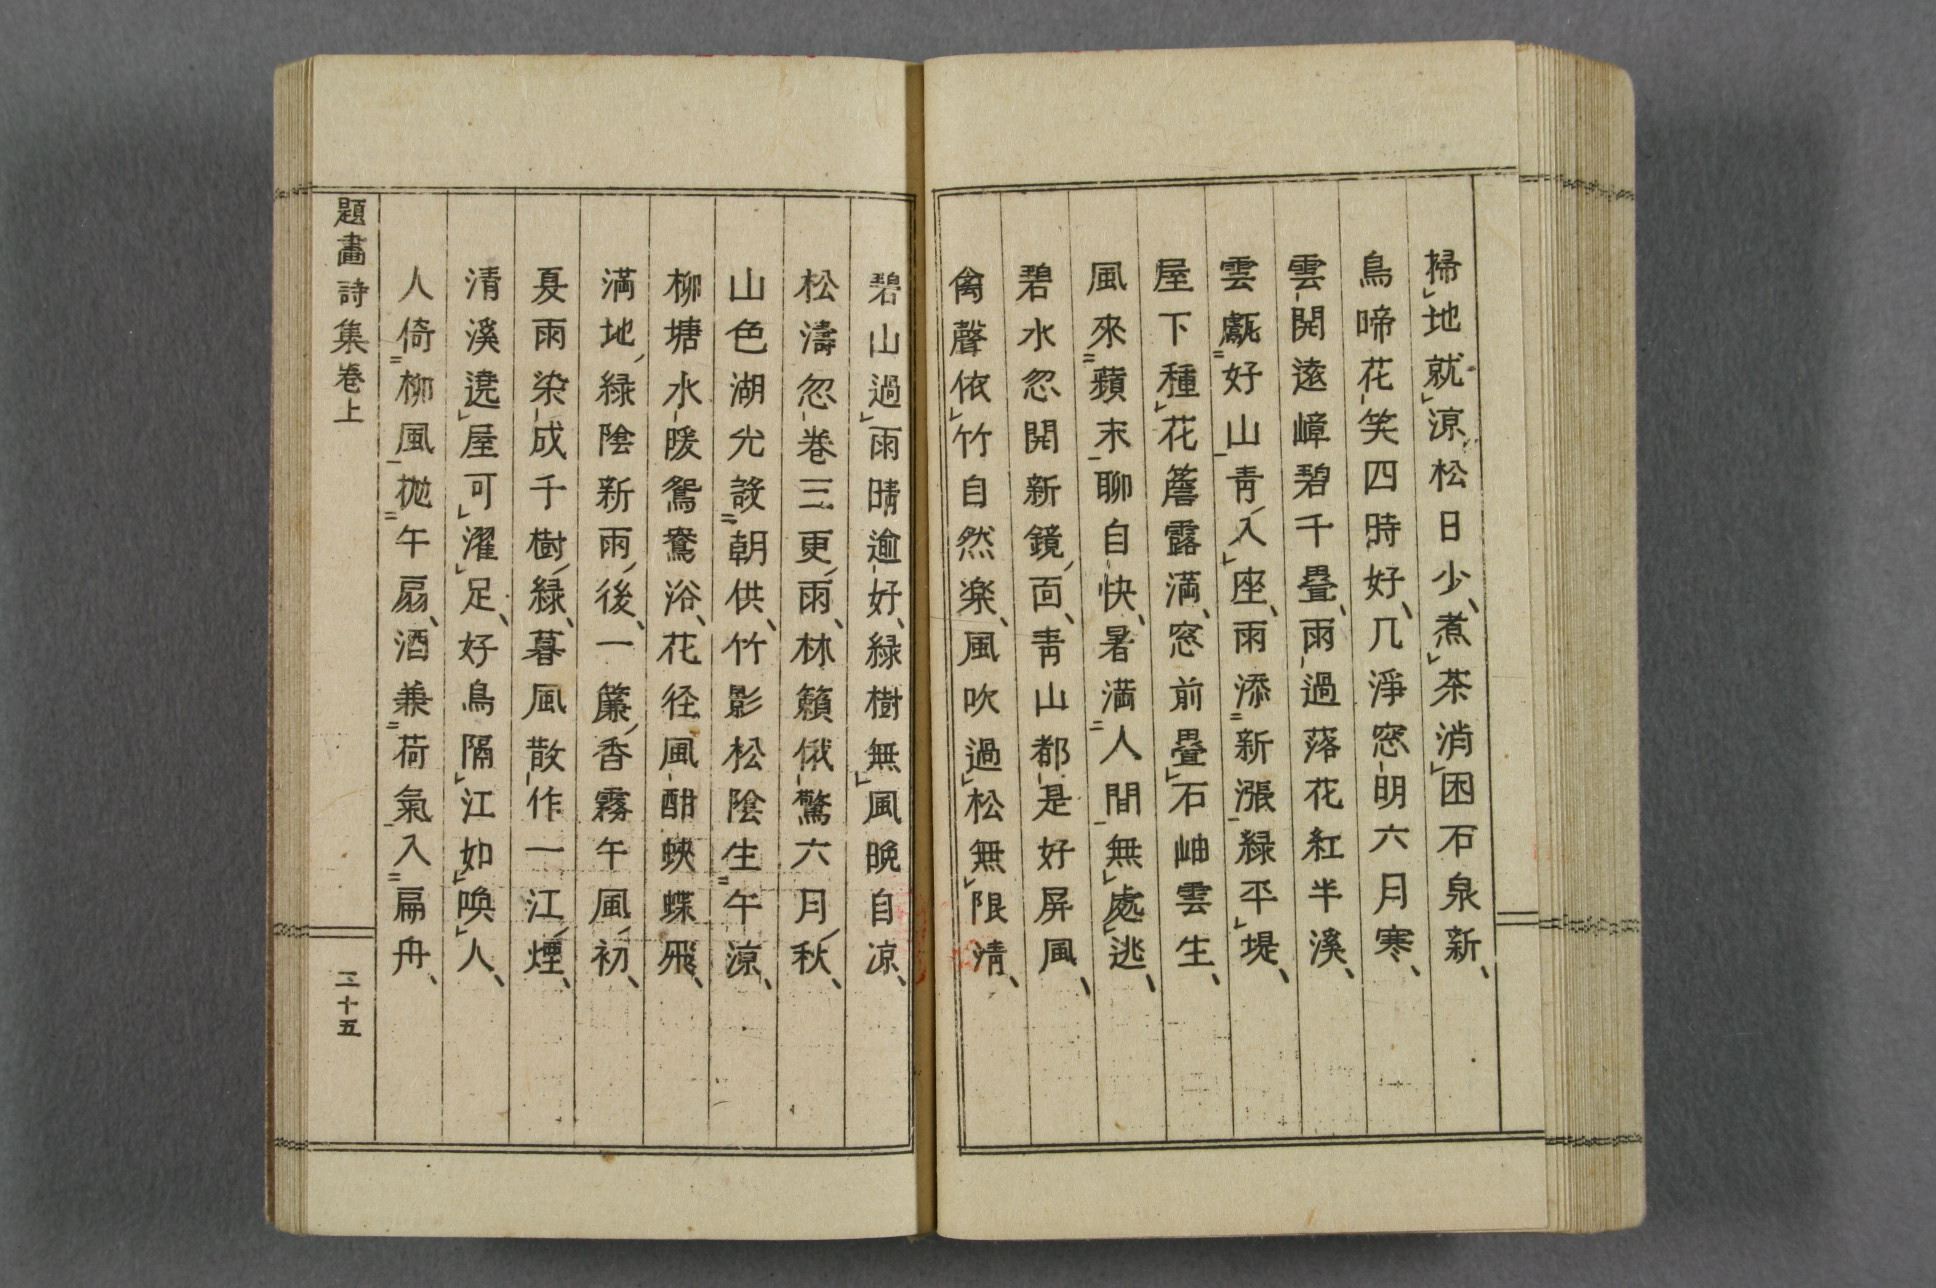 掃地就凉松日少、煮茶消困石泉新、
鳥啼花笑四時好、几淨窓明六月寒、
雲開遠嶂碧千疊、雨過落花紅半溪、
雲巘好山靑入座、雨添新漲緑平堤、
屋下種花簷露満、窓前疊石岫雲生、
風來蘋末聊自快、暑満人間無處逃、
碧水忽開新鏡面、靑山都是好屏風、
禽聲依竹自然楽、風吹過松無限清、
碧山過雨晴逾好、緑樹無風晩自凉、
松濤忽卷三更雨、林籟俄驚六月秋、
山色湖光設朝供、竹影松陰生午凉、
柳塘水暖鴛鴦浴、花径風酣蛺蝶飛、
満地緑陰新雨後、一簾香霧午風初、
夏雨染成千樹緑、暮風散作一江煙、
清溪遶屋可濯足、好鳥隔江如喚人、
人倚柳風抛午扇、酒兼荷氣入扁舟、
題畵詩集卷上
三十五